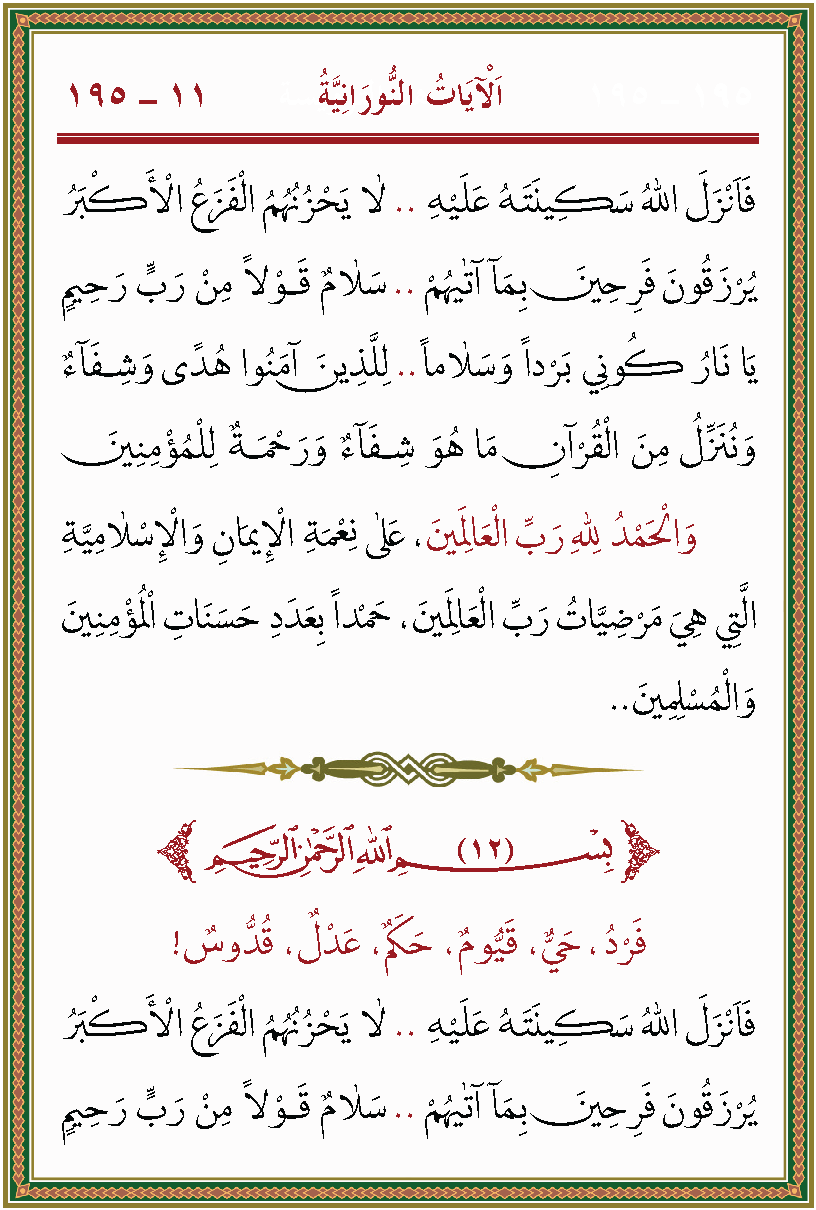 اَلْآيَاتُ النُّورَانِيَّةُ ١١ – ١٩٥
فَاَنْزَلَ اللهُ سَكِينَتَهُ عَلَيْهِ .. لَا يَحْزُنُهُمُ الْفَزَعُ الْأَكْبَرُ
يُرْزَقُونَ فَرِحِينَ بِمَآ آتٰيهُمْ .. سَلَامٌ قَوْلاً مِنْ رَبٍّ رَحِيمٍ
يَا نَارُ كُونِي بَرْداً وَسَلَاماً .. لِلَّذِينَ آمَنُوا هُدًى وَشِفَآءٌ
وَنُنَزِّلُ مِنَ الْقُرْآنِ مَا هُوَ شِفَآءٌ وَرَحْمَةٌ لِلْمُؤْمِنِينَ
وَالْحَمْدُ لِلهِ رَبِّ الْعَالَمِينَ، عَلٰى نِعْمَةِ الْإِيمَانِ وَالْإِسْلَامِيَّةِ
الَّتِي هِيَ مَرْضِيَّاتُ رَبِّ الْعَالَمِينَ، حَمْداً بِعَدَدِ حَسَنَاتِ الْمُؤْمِنِينَ
وَالْمُسْلِمِينَ..
بِسْمِ (١٢) ٱللهِ ٱلرَّحْمٰنِ ٱلرَّحِيمِ
فَرْدُ، حَيٌّ، قَيُّومٌ، حَكَمٌ، عَدْلٌ، قُدُّوسٌ!
فَاَنْزَلَ اللهُ سَكِينَتَهُ عَلَيْهِ .. لَا يَحْزُنُهُمُ الْفَزَعُ الْأَكْبَرُ
يُرْزَقُونَ فَرِحِينَ بِمَآ آتٰيهُمْ .. سَلَامٌ قَوْلاً مِنْ رَبٍّ رَحِيمٍ